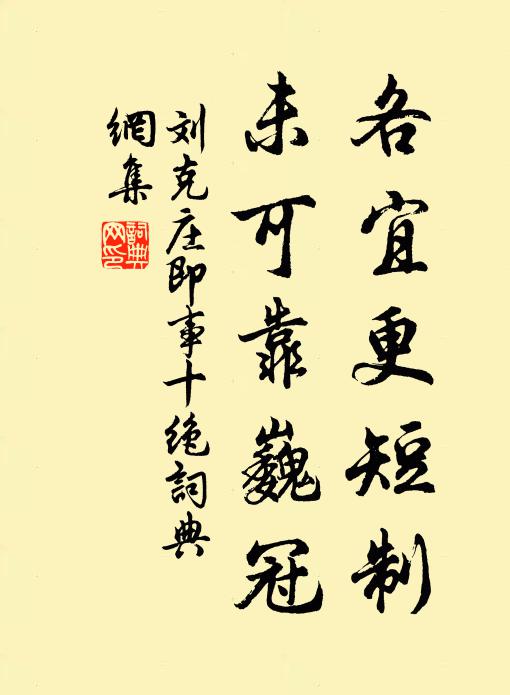 各宜更短制
未可靠巍冠
刘克庄即事十绝詞典
網集
詞典
网印